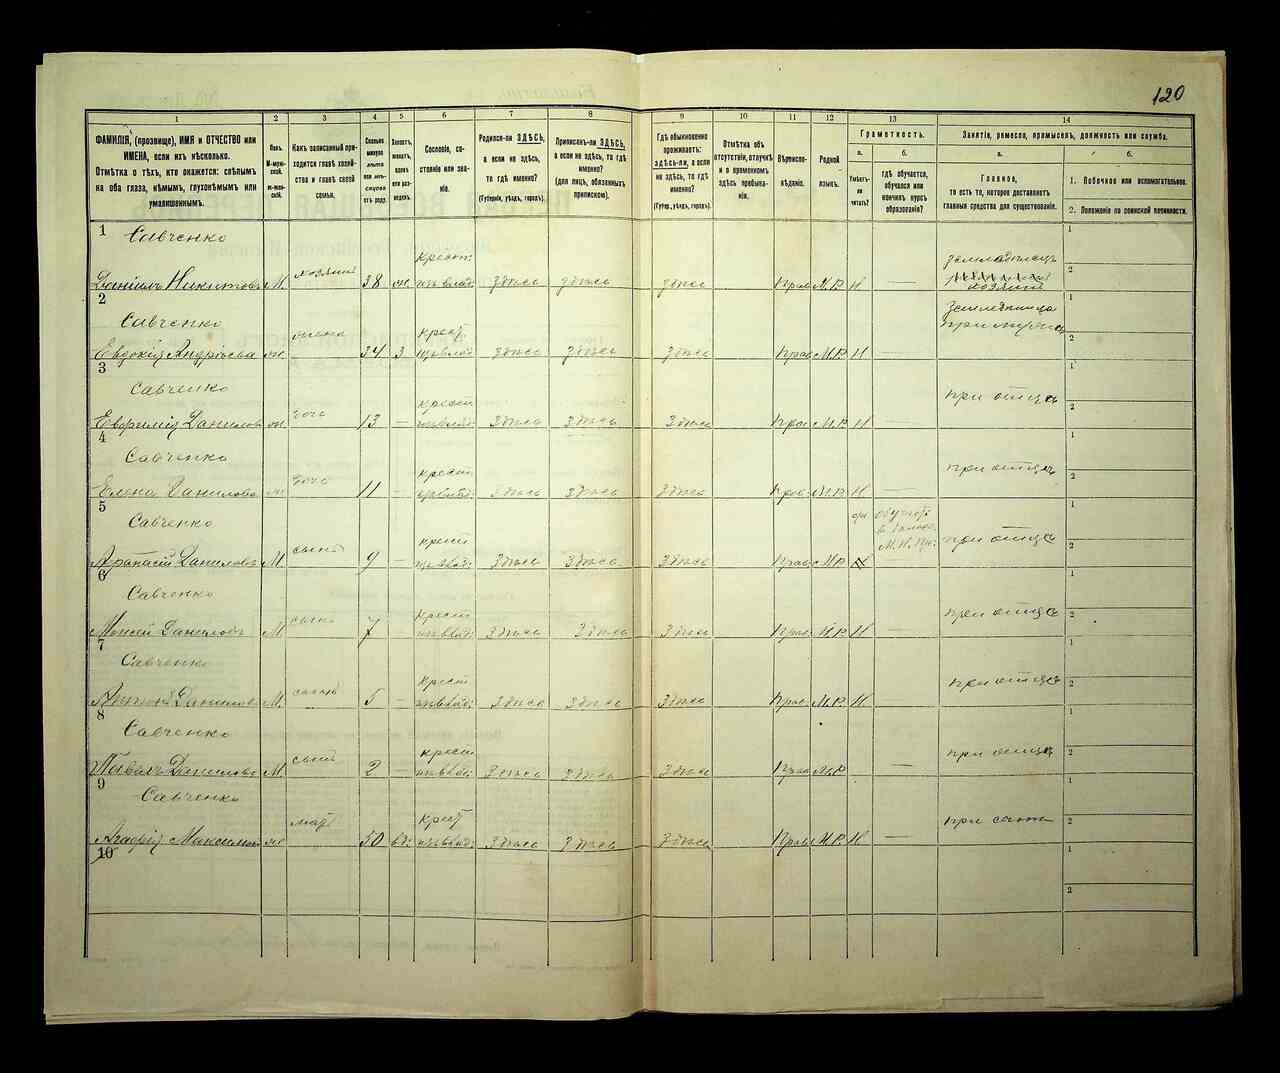 120
1 2 3 4 5 6 7 8 9 10 11 12 13 14
ФАМИЛІЯ, (прозвище), ИМЯ и ОТЧЕСТВО или
ИМЕНА, если ихъ нѣсколько.
Отмѣтка о тѣхъ, кто окажется: слѣпымъ
на оба глаза, нѣмымъ, глухонѣмымъ или
умалишеннымъ.
Полъ.
М-мужской.
Ж-женскій.
Какъ записанный приходится
главѣ хозяйства
и главѣ своей
семьи.
Сколько
минуло
лѣтъ
или мѣсяцевъ
отъ роду.
Холостъ,
женатъ,
вдовъ
или разведенъ.
Сословіе, состояніе
или званіе.
Родился-ли ЗДѢСЬ,
а если не здѣсь,
то гдѣ именно?
(Губернія, уѣздъ, городъ).
Приписанъ-ли ЗДѢСЬ,
а если не здѣсь, то гдѣ
именно?
(для лицъ, обязанныхъ
припискою).
Гдѣ обыкновенно
проживаетъ:
здѣсь-ли, а если
не здѣсь, то гдѣ
именно?
(Губер., уѣздъ, городъ).
Отмѣтка объ
отсутствіи, отлучкѣ
и о временномъ
здѣсь пребываніи.
Вѣроисповѣданіе.
Родной
языкъ.
Грамотность.
а.
Умѣетъ-ли
читать?
б.
гдѣ обучается,
обучался или
кончилъ курсъ
образованія?
Занятіе, ремесло, промыселъ, должность или служба.
а.
Главное,
то есть то, которое доставляетъ
главныя средства для существованія.
б.
1. Побочное или вспомогательное.
2. Положеніе по воинской повинности.
1 Савченко
Даніилъ Никитовъ М. хозяинъ 38 ж крест. здѣсь здѣсь здѣсь Прав М.Р. Н земледѣлецъ хозяинъ
2 Савченко
Евдокія Андріева ж жена 34 З крест здѣсь здѣсь здѣсь Прав М.Р. Н — при мужѣ
3 Савченко
Евфимія Данилов ж дочь 13 — крест здѣсь здѣсь здѣсь Прав М.Р. Н — при отцѣ
4 Савченко
Елена Данилова ж дочь 11 — крест здѣсь здѣсь здѣсь Прав М.Р. Н — при отцѣ
5 Савченко
Афанасій Даниловъ М. сынъ 9 крест здѣсь здѣсь здѣсь Прав М.Р. при отцѣ
6 Савченко
Моисей Даниловъ М. сынъ 7 крест здѣсь здѣсь здѣсь Прав М.Р. Н — при отцѣ
7 Савченко
Антоній Данилов М. сынъ 5 — крест здѣсь здѣсь здѣсь Прав М.Р. Н при отцѣ
8 Савченко
Павелъ Данилов М. сынъ 2 — крест здѣсь здѣсь здѣсь Прав М.Р. — при отцѣ
9 Савченко
Агафія Максимов ж мать 50 вд: крест здѣсь здѣсь здѣсь Прав М.Р. Н —
10